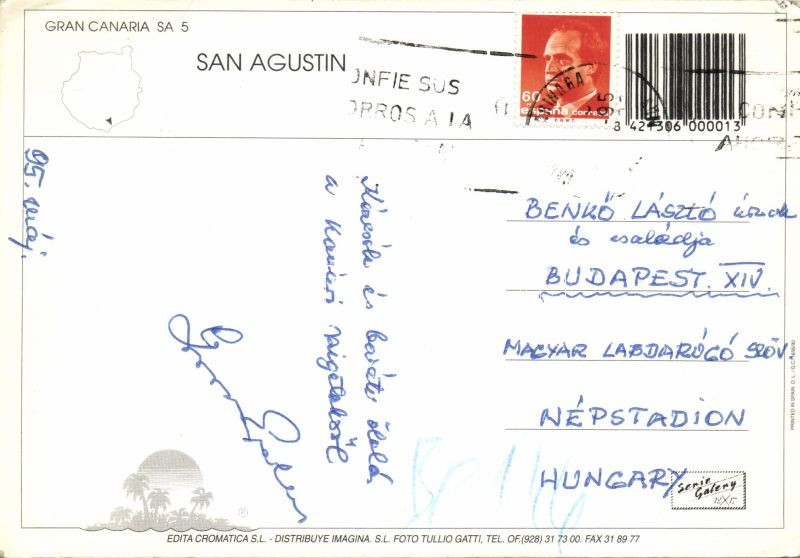 GRAN CANARIA SA 5
SAN AGUSTIN
ONFIE SUS
ORROS A LA
60
españa correos
F.N.M.T.
95
CONF
AHO
8 421306 000013
95. máj.
a Kanári szigetekről
BENKŐ LÁSZLÓ úrnak
és családja
BUDAPEST. XIV.
MAGYAR LABDARÚGÓ SZÖV.
NÉPSTADION
HUNGARY
Serie Galeny
PRINTED IN SPAIN
EDITA CROMATICA S.L. - DISTRIBUYE IMAGINA. S.L. FOTO TULLIO GATTI, TEL. OF.(928) 31 73 00. FAX 31 89 77